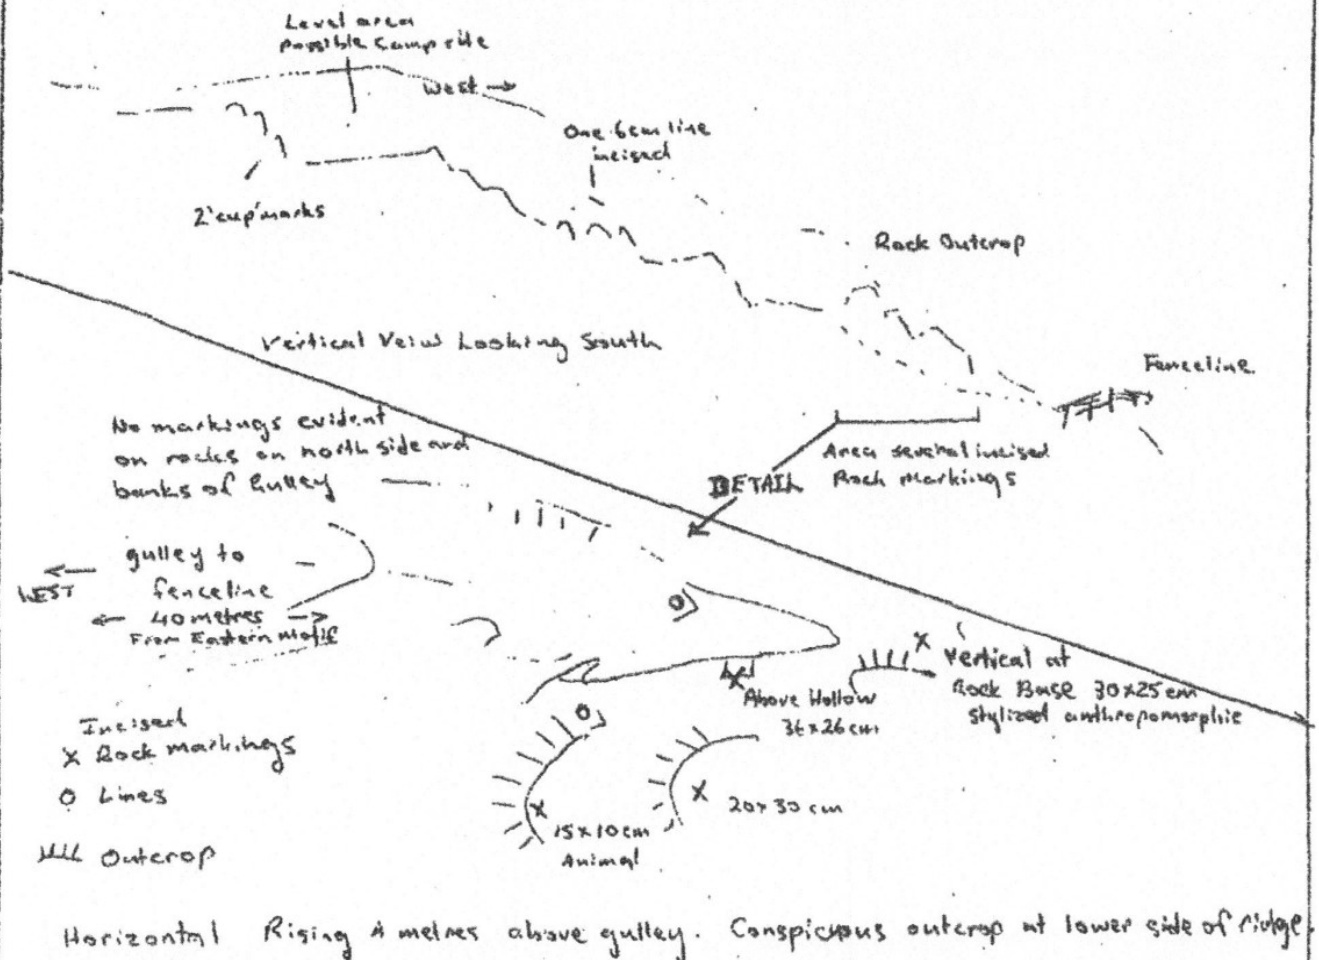 Level area
possible Camp site
West →
One 6cm line
incised
2 'cup' marks
Rock Outcrop
Vertical Veiw Looking South
Fenceline
No markings evident
on rocks on north side and
banks of Gulley
Area several incised
Rock Markings
DETAIL
gulley to
fenceline
WEST
40 metres
From Eastern Motif
Vertical at
Rock Base 30x25cm
stylized anthropomorphic
Above Hollow
36x26cm
Incised
X Rock markings
O Lines
20x30cm
15x10cm
Animal
Outcrop
Horizontal Rising 4 metres above gulley. Conspicuous outcrop at lower side of ridge.